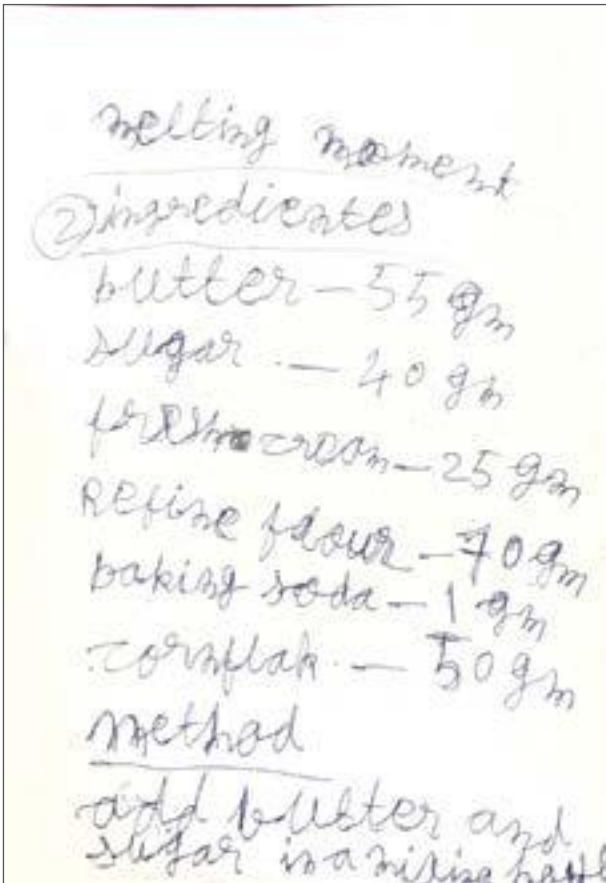 melting moment
② ingredientes
butter - 55 gm
sugar - 40 gm
fresh cream - 25 gm
Refine flour - 70 gm
baking soda - 1 gm
cornflak - 50 gm
method
add butter and
sugar in a